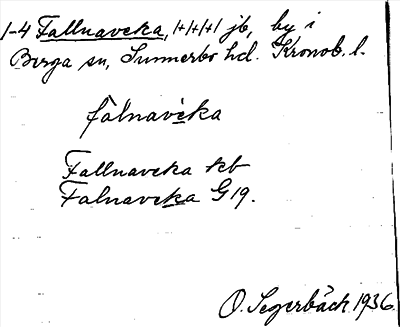 1-4 Fallnaveka, 1+1+1+1 jb, by i
Berga sn, Sunnerbo hd. Kronob. l.
fálnavèka
Fallnaveka kb
Falnaveka G 19.
O. Segerbäck 1936.